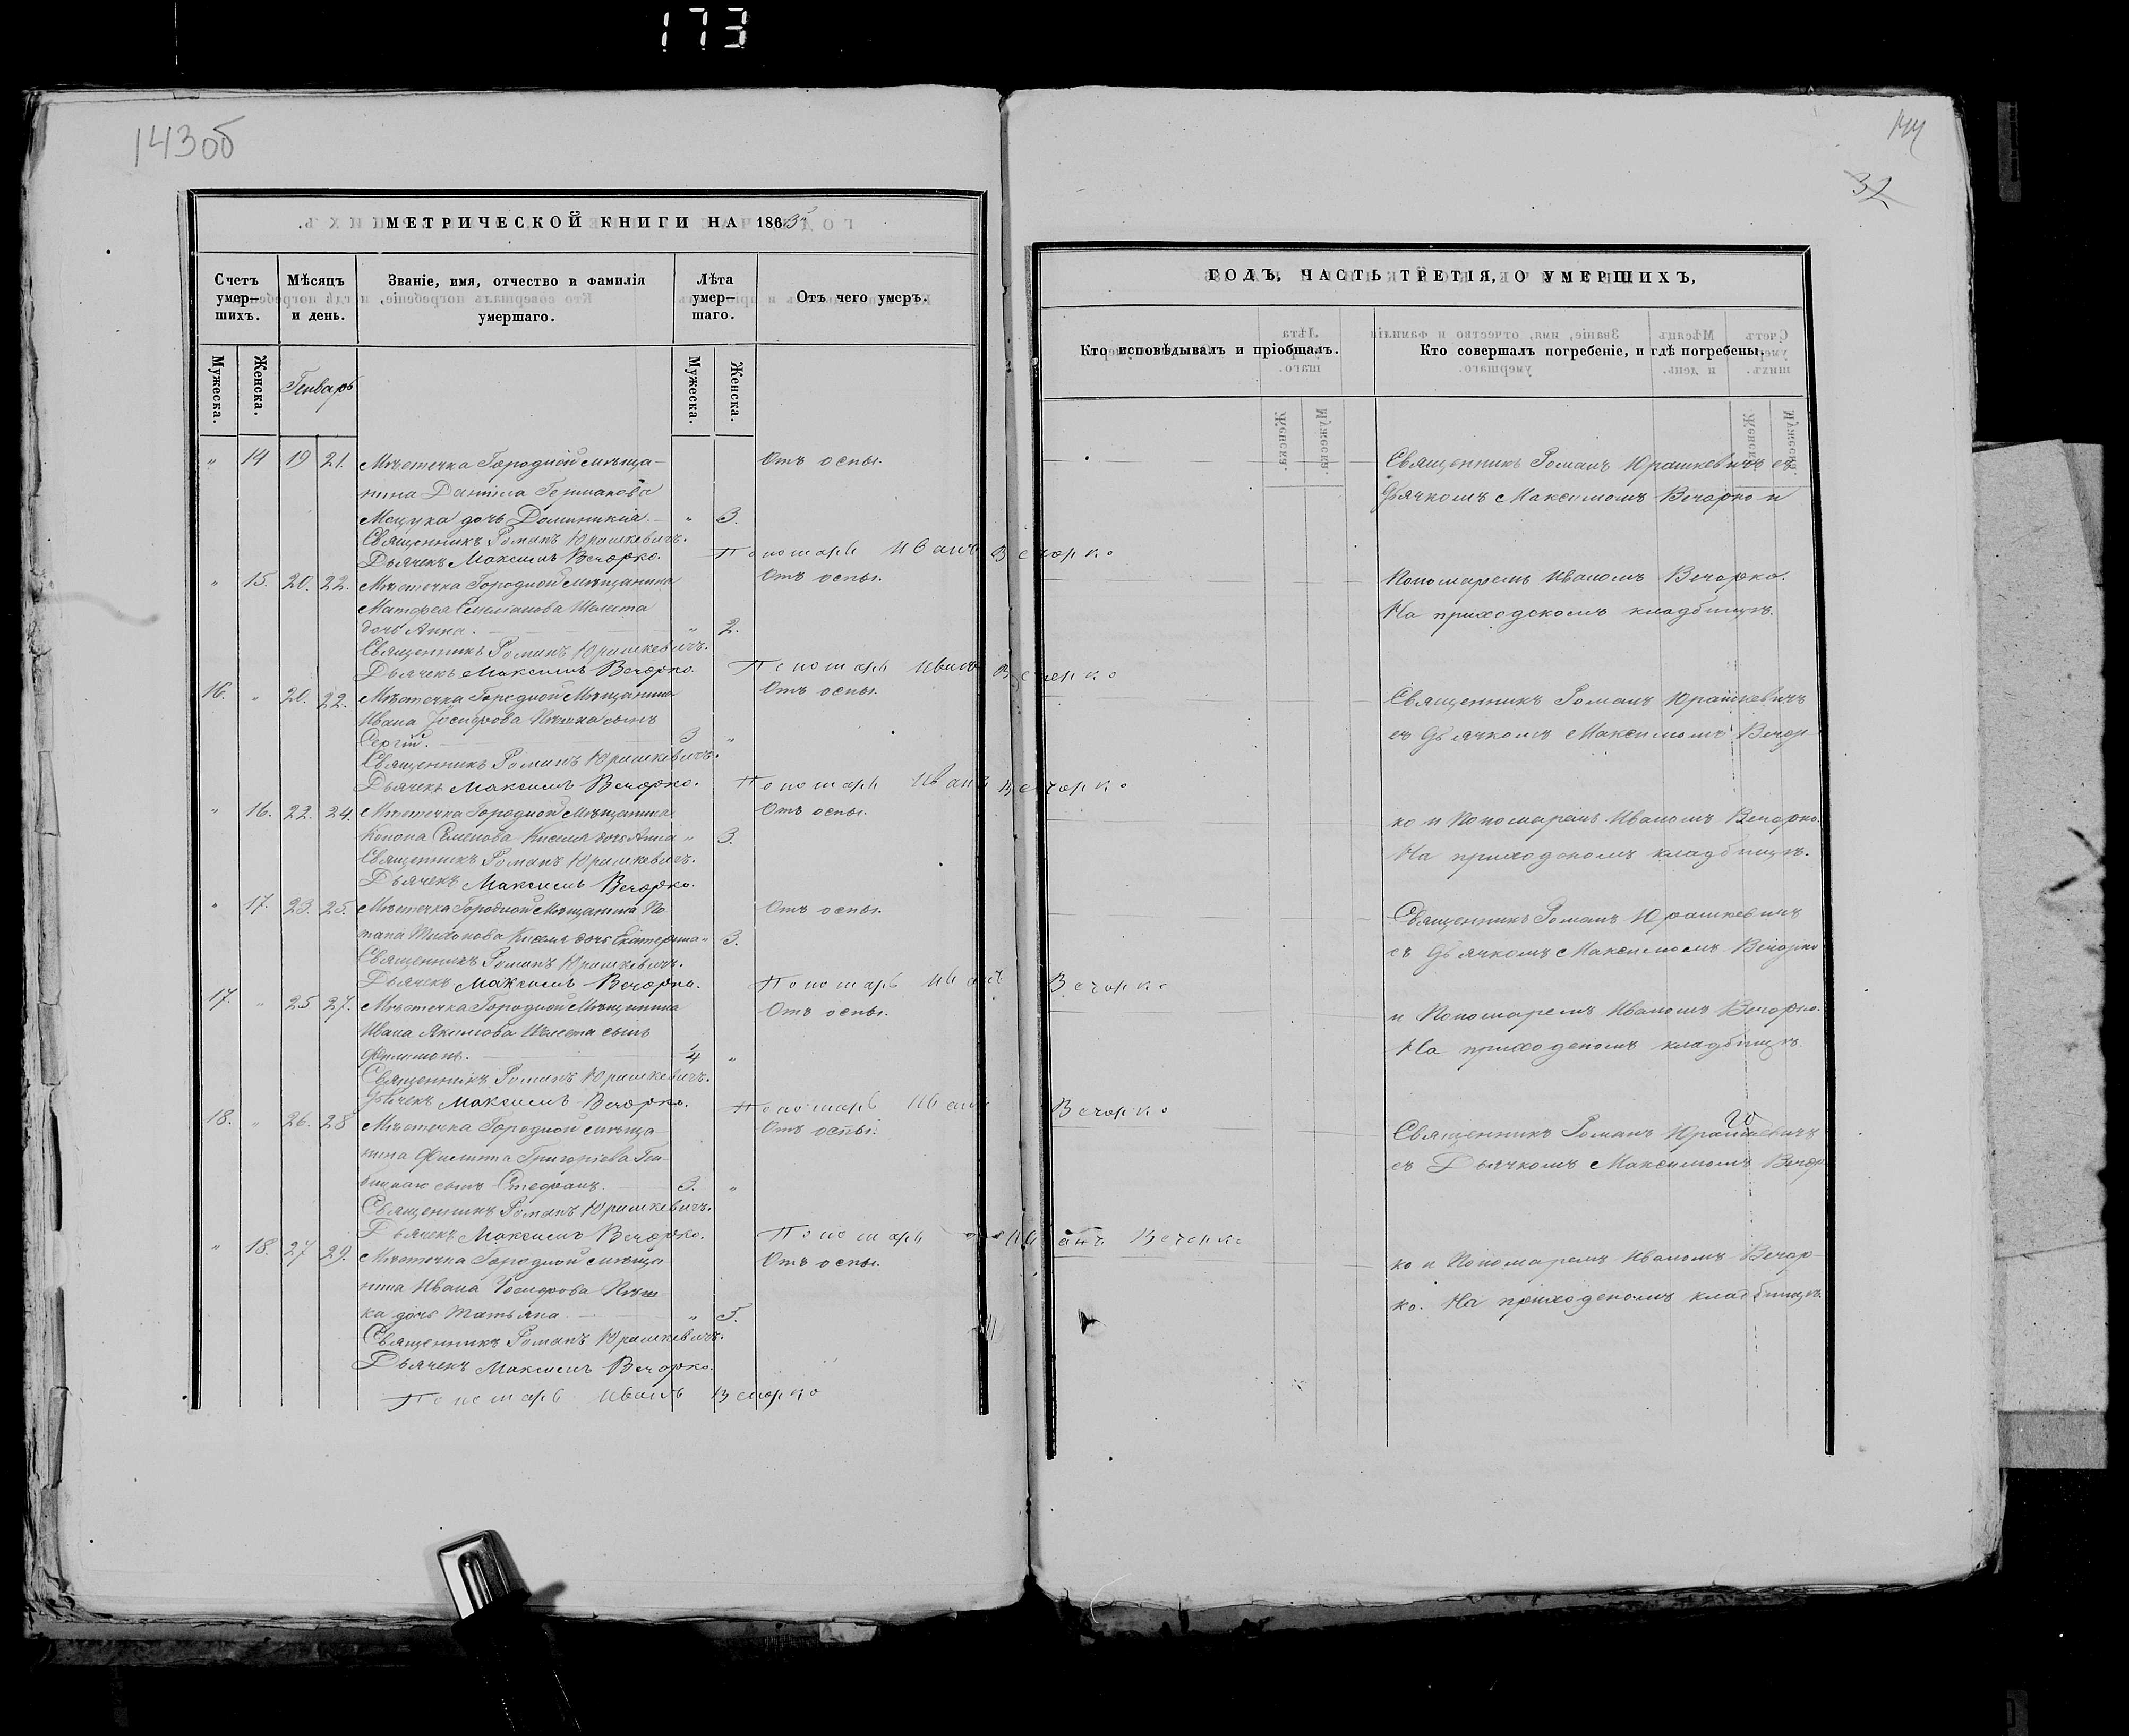 173
143об
144
32
МЕТРИЧЕСКОЙ КНИГИ НА 1863й
Счетъ умер-шихъ.
Мѣсяцъ и день.
Званіе, имя, отчество и фамилія умершаго.
Лѣта умер-шаго.
Отъ чего умеръ.
Мужеска.
Женска.
Генварь
Мужеска.
Женска.
" 14 19 21. Мѣстечка Городной мѣща- Отъ оспы.
нина Даніила Германова
дочь Доминикія. " 3.
Священникъ Романъ Юрашкевичъ.
Дьячекъ Максимъ Вечорко. Пономарь Иванъ Вечорко
" 15. 20. 22. Мѣстечка Городной Мѣщанина Отъ оспы.
Матфея Шелеста
дочь Анна. " 2.
Священникъ Романъ Юрашкевичъ.
Дьячекъ Максимъ Вечорко. Пономарь Иванъ Вечорко
16. " 20. 22. Мѣстечка Городной Мѣщанина Отъ оспы.
Ивана Іосифова Пѣшка сынъ
Сергій. 3 "
Священникъ Романъ Юрашкевичъ.
Дьячекъ Максимъ Вечорко. Пономарь Иванъ Вечорко
" 16. 22. 24. Мѣстечка Городной Мѣщанина Отъ оспы.
Конона Семенова Киселя дочь Анна " 3.
Священникъ Романъ Юрашкевичъ.
Дьячекъ Максимъ Вечорко.
" 17. 23. 25. Мѣстечка Городной Мѣщанина По Отъ оспы.
тапа Киселя дочь Екатерина " 3.
Священникъ Романъ Юрашкевичъ.
Дьячекъ Максимъ Вечорко. Пономарь Иванъ Вечорко
17. " 25. 27. Мѣстечка Городной Мѣщанина Отъ оспы.
Ивана Якимова Шелеста сынъ
Филимонъ. 1/4 "
Священникъ Романъ Юрашкевичъ.
Дьячекъ Максимъ Вечорко. Пономарь Иванъ Вечорко
18. " 26. 28 Мѣстечка Городной мѣща Отъ оспы.
нина Филипа Григоріева
сынъ Стефанъ. 3. "
Священникъ Романъ Юрашкевичъ.
Дьячекъ Максимъ Вечорко. Пономарь Иванъ Вечорко
" 18. 27 29. Мѣстечка Городной мѣща Отъ оспы.
нина Ивана Іосифова Пѣш
ка дочь Татьяна " 5.
Священникъ Романъ Юрашкевичъ.
Дьячекъ Максимъ Вечорко.
Пономарь Иванъ Вечорко
ГОДЪ, ЧАСТЬ ТРЕТІЯ, О УМЕРШИХЪ,
Кто исповѣдывалъ и пріобщалъ.
Кто совершалъ погребеніе, и гдѣ погребены.
Священникъ Романъ Юрашкевичъ съ
Дьячкомъ Максимомъ Вечорко и
Пономаремъ Иваномъ Вечорко.
На приходскомъ кладбищѣ.
Священникъ Романъ Юрашкевичъ
съ Дьячкомъ Максимомъ Вечор
ко и Пономаремъ Иваномъ Вечорко.
На приходскомъ кладбищѣ.
Священникъ Романъ Юрашкевичъ
съ Дьячкомъ Максимомъ Вечорко
и Пономаремъ Иваномъ Вечорко.
На приходскомъ кладбищѣ.
Священникъ Романъ Юрашкевичъ
съ Дьячкомъ Максимомъ Вечор
ко и Пономаремъ Иваномъ Вечор-
ко. На приходскомъ кладбищѣ.